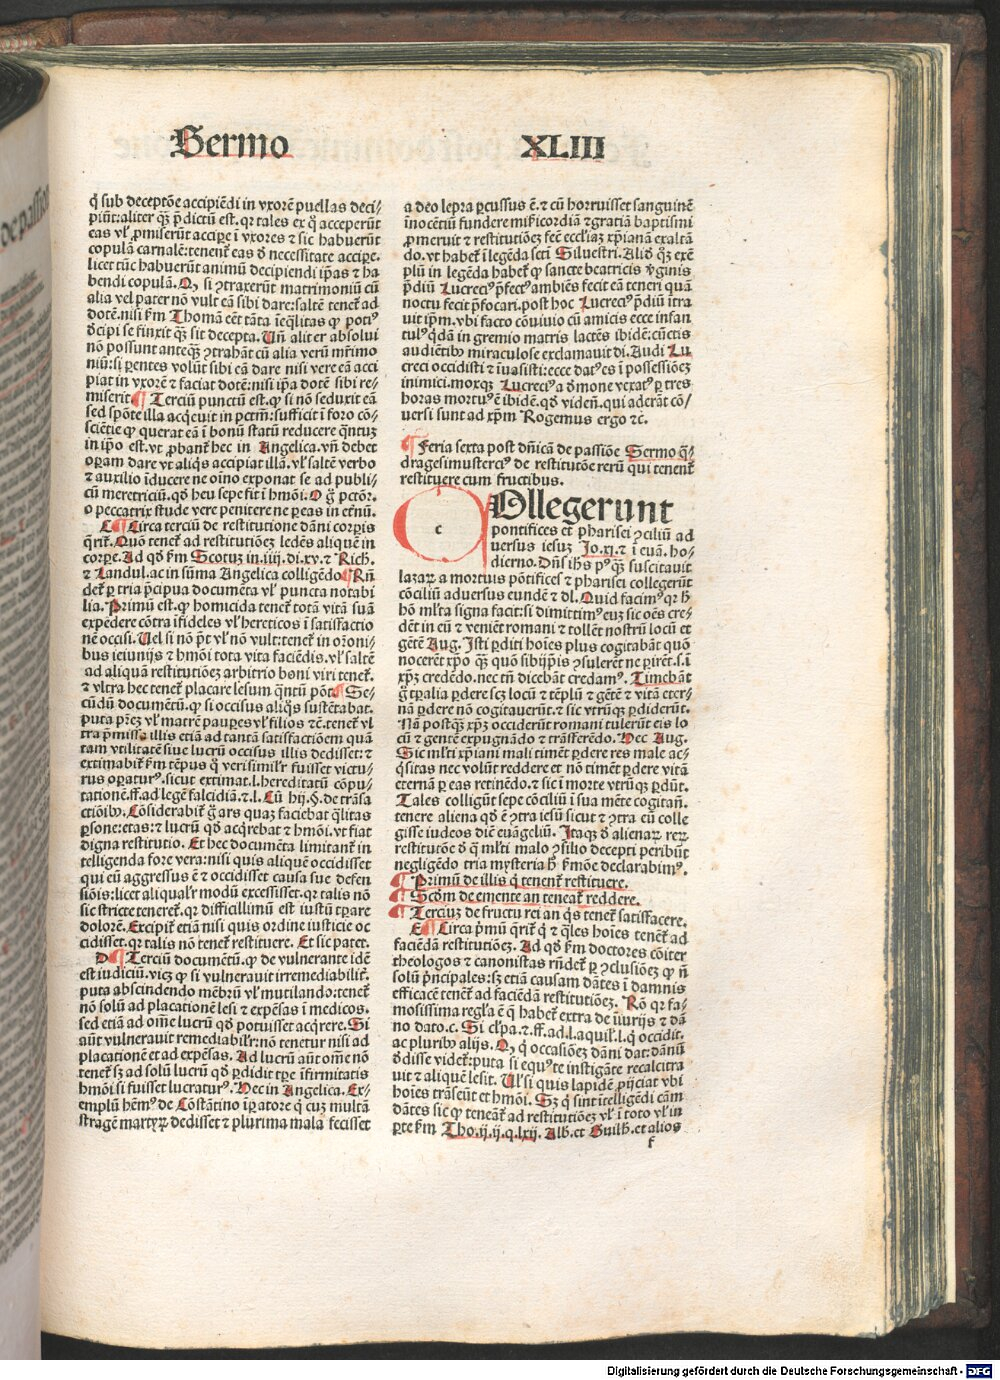 Sermo XLIII
q̄ sub deceptōe accipiēdi in vxorē puellas deci/
piūt: aliter qꝫ p̄dictū est. qr tales ex q̊ acceperūt
eas vl̓ ꝓmiserūt accipe ī vxores ⁊ sic habuerūt
copulā carnalē: tenent̄ eas ð necessitate accipe.
licet tūc habuerūt animū decipiendi ip̄as ⁊ ha
bendi copulā. Qꝫ si ꝯtraxerūt matrimoniū cū
alia vel pater nō vult eā sibi dare: saltē tenet̄ ad
dotē. nisi ẜm Thomā eēt tāta īeq̄litas ꝙ poti⁹
ðcipi se finxit qꝫ sit decepta. Un̄ aliter absolui
nō possunt anteqꝫ ꝯtrahāt cū alia verū mr̄imo
niū: si pentes volūt sibi eā dare nisi vere eā acci
piat in vxorē ⁊ faciat dotē: nisi ip̄a dotē sibi re/
miserit ¶ Terciū punctū est. ꝙ si nō seduxit eā
sed spōte illa acq̄euit in pctm̄: sufficit ī foro cō/
sciētie ꝙ querat eā ī bonū statū reducere q̄ntuꝫ
in ip̄o est. vt ꝓbant̄ hec in Angelica. vn̄ debet
oꝑam dare vt aliq̄s accipiat illā. vl̓ saltē verbo
⁊ auxilio īducere ne oīno exponat se ad publi/
cū meretriciū. qð heu sepe fit ī hmōi. O g̊ pctōr.
o peccatrix stude vere penitere ne ꝑeas in et̄nū.
C ¶ Circa terciū de restitutione dāni corꝑis
q̄rit̄. Quō tenet̄ ad restitutiōeꝫ ledēs aliquē in
corꝑe. Ad qð ẜm Scotuꝫ in. iiij. di. xv. ⁊ Rich.
⁊ Landul. ac in sūma Angelica colligēdo ¶ Rn̄
det̄ ꝑ tria p̄cipua documēta vl̓ puncta notabi
lia. Primū est. ꝙ homicida tenet̄ totā vitā suā
expēdere cōtra īfideles vl̓ hereticos ī satisfactio
nē occisi. Uel si nō p̄t vl̓ nō vult: tenet̄ in or̄oni/
bus ieiunijs ⁊ hmōi tota vita faciēdis. vl̓ saltē
ad aliquā restitutiōeꝫ arbitrio boni viri tenet̄.
⁊ vltra hec tenet̄ placare lesum q̄ntū pōt ¶ Se/
cūdū documētū. ꝙ si occisus aliq̄s sustētabat.
puta p̄eꝫ vl̓ matrē pauꝑes vl̓ filios ⁊c̄. tenet̄ vl̓
tra p̄missa illis etiā ad tantā satisfactiōem quā
tam vtilitatē siue lucrū occisus illis dedisset: ⁊
extimabit̄ ẜm tēpus q̊ verisimilr̄ fuisset victu/
rus oꝑatur⁹. sicut extimat. l. hereditatū cōpu/
tationē. ff. ad legē falcidiā. ⁊. l. Cū hij. §. de trāsa
ctiōibꝫ. Cōsiderabit̄ g̊ ars quaꝫ faciebat q̄litas
ꝑsone: etas: ⁊ lucrū qð acq̄rebat ⁊ hmōi. vt fiat
digna restitutio. Et hec documēta limitant̄ in
telligenda fore vera: nisi quis aliquē occidisset
qui eū aggressus ē ⁊ occidisset causa sue defen
siōis: licet aliqualr̄ modū excessisset. qr talis nō
sic stricte teneret̄. qr difficillimū est iustū tꝑare
dolorē. Excipit̄ etiā nisi quis ordine iusticie oc
cidisset. qr talis nō tenet̄ restituere. Et sic patet.
D ¶ Terciū documētū. ꝙ de vulnerante idē
est iudiciū. viꝫ ꝙ si vulnerauit irremediabilit̄.
puta abscindendo mēbrū vl̓ mutilando: tenet̄
nō solū ad placationē lesi ⁊ expēsas ī medicos.
sed etiā ad om̄e lucrū qð potuisset acq̄rere. Si
aūt vulnerauit remediabilr̄: nō tenetur nisi ad
placationē et ad expēsas. Ad lucrū aūt om̄e nō
tenet̄ sꝫ ad solū lucrū qð ꝑdidit tꝑe īfirmitatis
hmōi si fuisset lucratur⁹. Hec in Angelica. Ex/
emplū hēm⁹ de Cōstātino īꝑatore q̄ cuꝫ multā
stragē martyꝝ dedisset ⁊ plurima mala fecisset
a deo lepra ꝑcussus ē. ⁊ cū horruisset sanguinē
īnocētiū fundere mīcordiā ⁊ gratiā baptismi
ꝓmeruit ⁊ restitutiōeꝫ fec̄ eccl̓iaꝫ xp̄ianā exaltā
do. vt habet̄ ī legēda scti Siluestri. Alið qꝫ exē
plū in legēda habet̄ ꝙ sancte beatricis v̓ginis
p̄diū Lucreci⁹ p̄fect⁹ ambiēs fecit eā teneri quā
noctu fecit p̄focari. post hoc Lucreci⁹ p̄diū ītra
uit ip̄m. vbi facto cōuiuio cū amicis ecce infan
tul⁹ q̄dā in gremio matris lactēs ibidē: cūctis
audiētibꝫ miraculose exclamauit di. Audi Lu
creci occidisti ⁊ īuasisti: ecce dat⁹ es ī possessiōeꝫ
inimici. moxqꝫ Lucreci⁹ a ðmone vexat⁹ ꝑ tres
horas mortu⁹ ē ibidē. qð viden̄. qui aderāt cō/
uersi sunt ad xp̄m Rogemus ergo ⁊c.
¶ Feria sexta post dn̄icā de passiōe Sermo q̄/
dragesimustercius de restitutōe rerū qui tenent̄
restituere cum fructibus.
c
Ollegerunt
pontifices et pharisei ꝯciliū ad
uersus iesuꝫ Jo. xj. ⁊ ī euā. ho/
dierno. Dn̄s ih̄s p⁹qꝫ suscitauit
lazaꝝ a mortuis pōtifices ⁊ pharisei collegerūt
cōciliū aduersus eundē ⁊ dl. Quid facim⁹ qr h̄
hō ml̓ta signa facit: si dimittim⁹ euꝫ sic oēs cre/
dēt in eū ⁊ veniēt romani ⁊ tollēt nostrū locū et
gētē Aug. Isti ꝑditi hoīes plus cogitabāt quō
nocerēt xp̄o qꝫ quō sibijpis ꝯsulerēt ne ꝑirēt. s. ī
xp̄ꝫ credēdo. nec tn̄ dicebāt credam⁹. Timebāt
g̊ tꝑalia ꝑdere scꝫ locū ⁊ tēplū ⁊ gētē ⁊ vitā eter/
nā ꝑdere nō cogitauerūt. ⁊ sic vtrūqꝫ ꝑdiderūt.
Nā postqꝫ xp̄ꝫ occiderūt romani tulerūt eis lo
cū ⁊ gentē expugnādo ⁊ trāsferēdo. Hec Aug.
Sic ml̓ti xp̄iani mali timēt ꝑdere res male ac/
q̄sitas nec volūt reddere et nō timēt ꝑdere vitā
eternā ꝑ eas retinēdo. ⁊ sic ī morte vtrūqꝫ ꝑdūt.
Tales colligūt sepe cōciliū ī sua mēte cogitan̄.
tenere aliena qð ē ꝯtra iesū sicut ⁊ ꝯtra cū colle
gisse iudeos diē euāgeliū. Itaqꝫ ð alienaꝝ reꝝ
restitutōe ð q̊ ml̓ti malo ꝯsilio decepti peribūt
negligēdo tria mysteria h̄ ẜmōe declarabim⁹.
¶ Primū de illis q̄ tenent̄ restituere.
¶ Scd̄m de emente an teneat̄ reddere.
¶ Terciuꝫ de fructu rei an q̄s tenet̄ satisfacere.
E ¶ Circa p̄mū q̄rit̄ q̄ ⁊ q̄les hoīes tenet̄ ad
faciēdā restitutiōeꝫ. Ad qð ẜm doctores cōiter
theologos ⁊ canonistas rn̄det̄ ꝑ ꝯclusiōeꝫ ꝙ n̄
solū p̄ncipales: sꝫ etiā causam dātes ī damnis
efficacē tenet̄ ad faciēdā restitutiōeꝫ. Rō qr fa/
mosissima regl̓a ē q̄ habet̄ extra de iniurijs ⁊ dā
no dato. c. Si cl̓pa. ⁊. ff. ad. l. aquil̓. l. q̄ occidit.
ac pluribꝫ alijs. Qꝫ q̄ occasiōeꝫ dāni dat: dānū
ðdisse videt̄: puta si equ⁹ te instigāte recalcitra
uit ⁊ aliquē lesit. Ul̓ si quis lapidē ꝓijciat vbi
hoīes trāseūt et hmōi. Sꝫ q̄ sint ītelligēdi cām
dātes sic ꝙ teneāt̄ ad restitutiōeꝫ vl̓ ī toto vl̓ in
ꝑte ẜm Tho. ij. ij. q. lxij. Alb. et Guilh. et alios
f
Digitalisierung gefördert durch die Deutsche Forschungsgemeinschaft - DFG